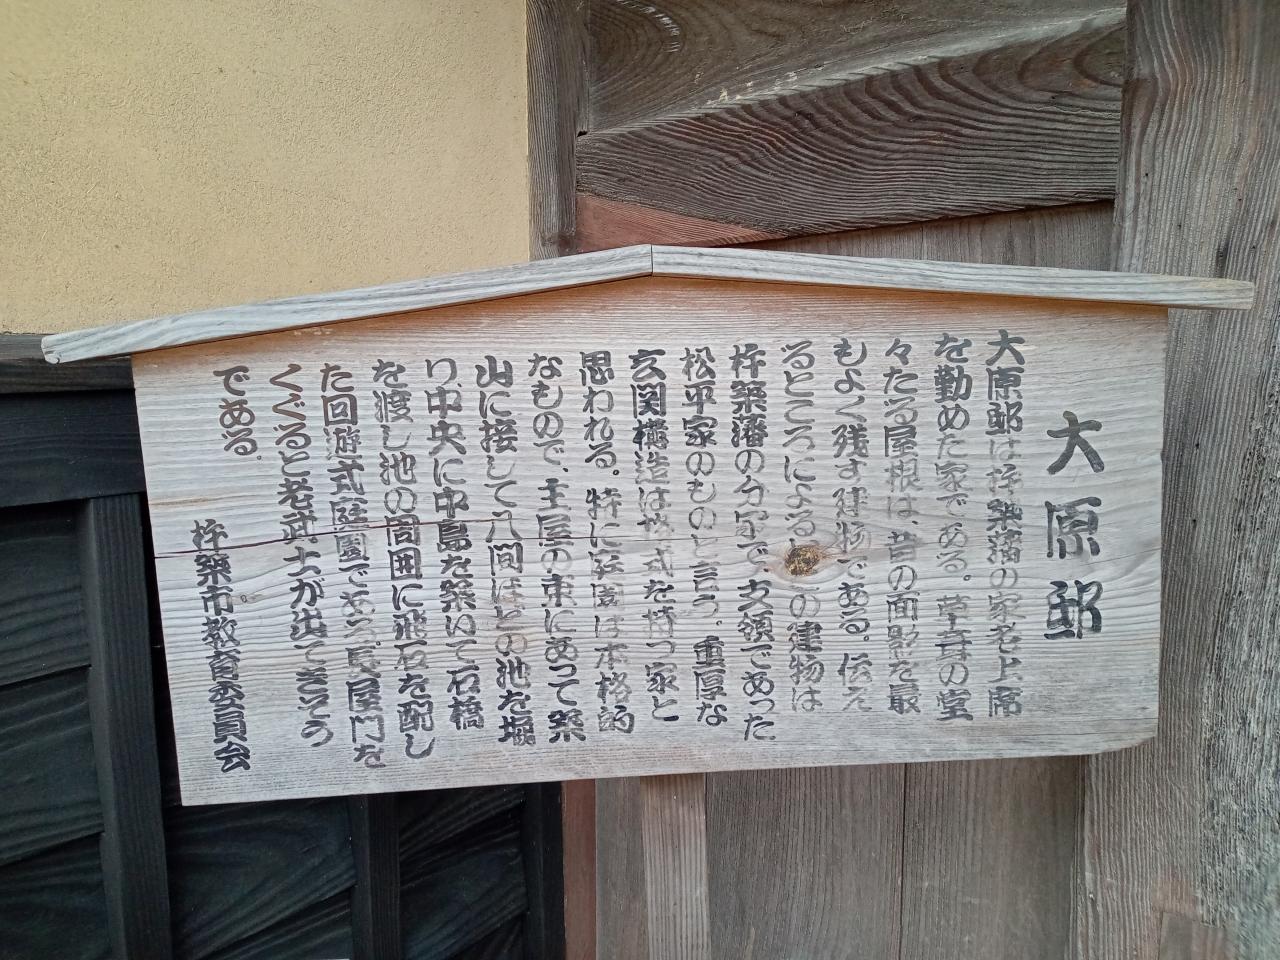 大原邸
大原邸は杵築藩の家老上席
を勤めた家である。草葺の堂
々たる屋根は、昔の面影を最
もよく残す建物である。伝え
るところによるとこの建物は
杵築藩の分家で、支領であった
松平家のものと言う。重厚な
玄関構造は格式を持つ家と
思われる。特に庭園は本格的
なもので、主屋の東にあって築
山に接して八間ほどの池を堀
り、中央に中島を築いて石橋
を渡し池の周囲に飛石を配し
た回遊式庭園である。長屋門を
くぐると老武士が出てきそう
である。
杵築市教育委員会